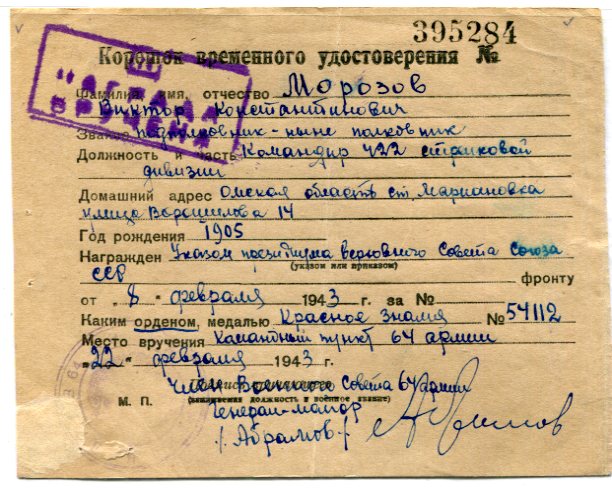 395284
Корешок временного удостоверения №
НАГРАДА
ВРУЧЕНА
Фамилия, имя, отчество Морозов
Виктор Константинович
Звание подполковник - ныне полковник
Должность и часть Командир 422 стрелковой
дивизии
Домашний адрес Омская область ст. Марьяновка
улица Ворошилова 14
Год рождения 1905
Награжден Указом президиума верховного Совета Союза
(указом или приказом)
ССР фронту
от „8" февраля 1943 г. за №
Каким орденом, медалью Красное Знамя № 54112
Место вручения Камантный пункт 64 армии
„22" февраля 1943 г.
Член Военного Совета 64 армии
М. П. (вручившего должность и военное звание)
Генерал-майор
/Абрамов/